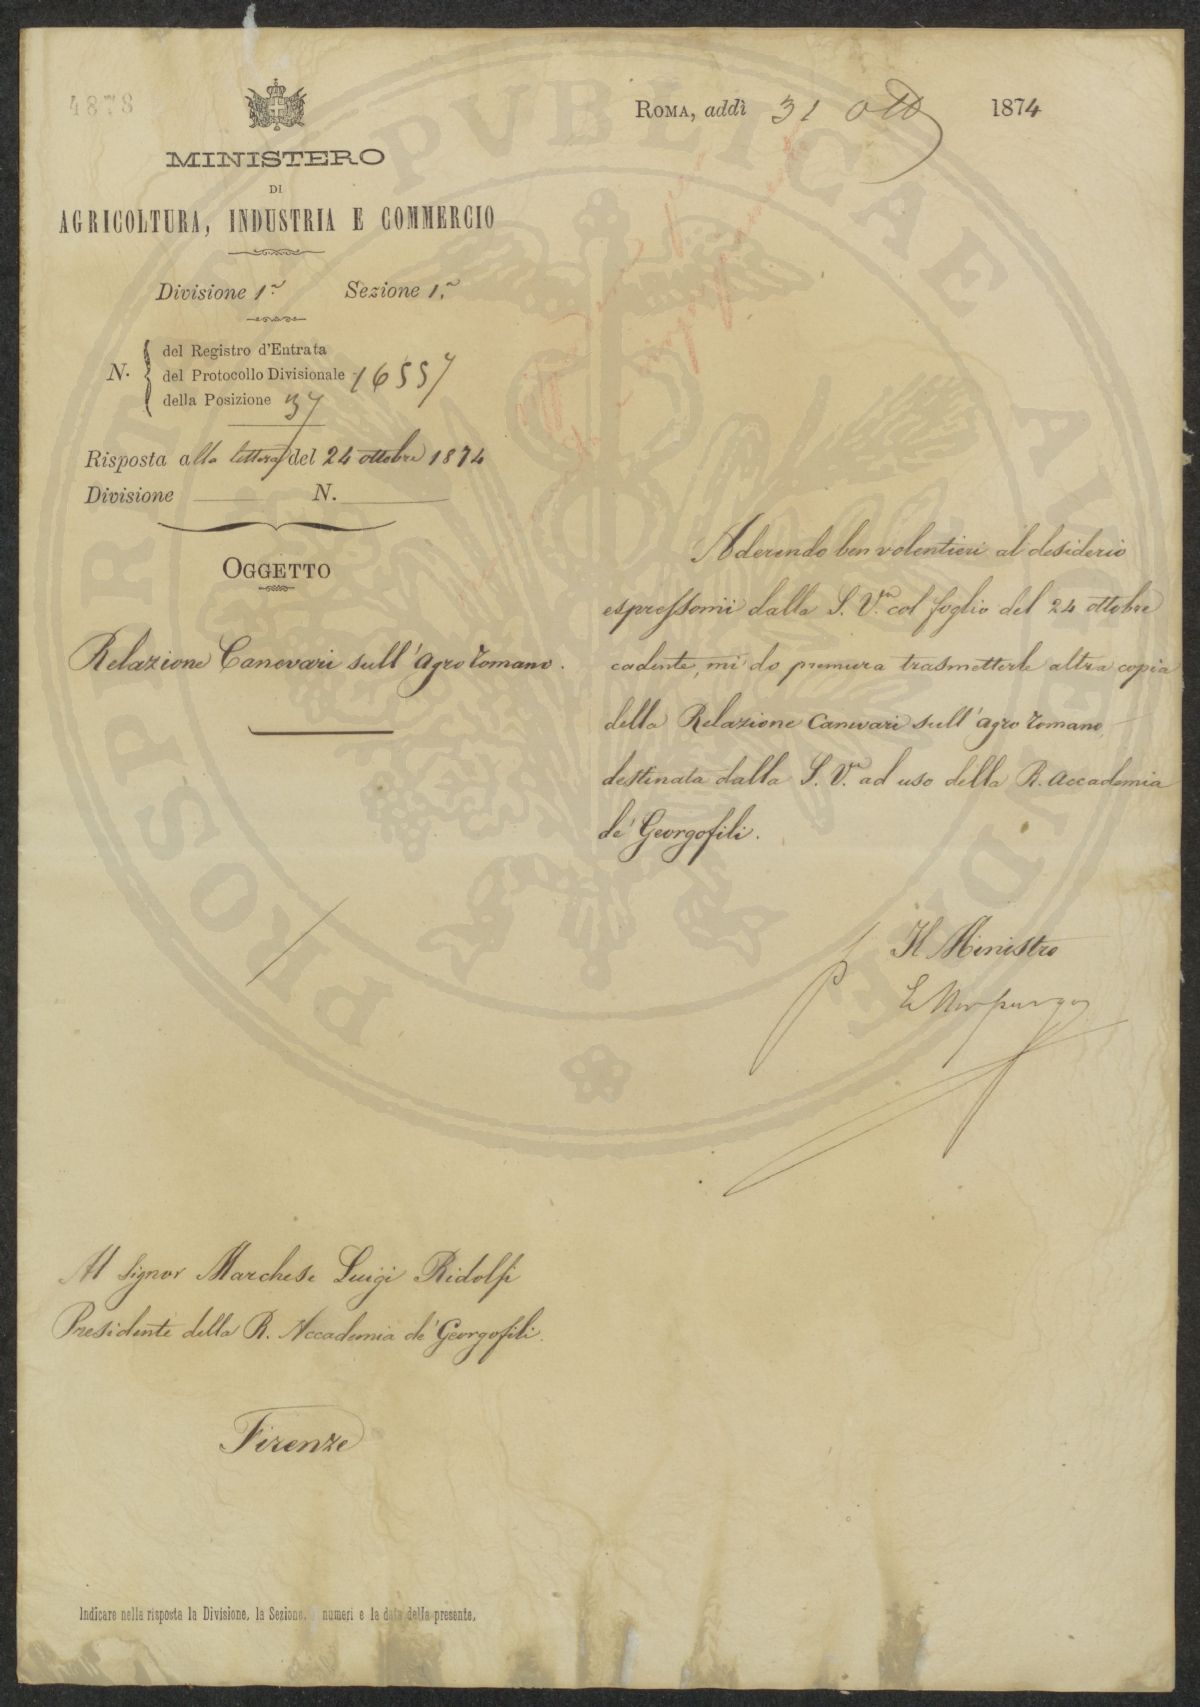 4878
ROMA, addì 31 ott 1874
MINISTERO
DI
AGRICOLTURA, INDUSTRIA E COMMERCIO
Divisione 1ª Sezione 1ª
N. del Registro d'Entrata
del Protocollo Divisionale 16557
della Posizione 37
Risposta alla lettera del 24 ottobre 1874
Divisione N.
OGGETTO
Relazione Canevari sull'Agro romano.
Aderendo ben volentieri al desiderio
espressomi dalla S. V.ra col foglio del 24 ottobre
cadente, mi do premura trasmetterle altra copia
della Relazione Canevari sull'Agro romano,
destinata dalla S. V.ra ad uso della R. Accademia
de' Georgofili.
Il Ministro
E Morpurgo
Al Signor Marchese Luigi Ridolfi
Presidente della R. Accademia de' Georgofili.
Firenze
Indicare nella risposta la Divisione, la Sezione, i numeri e la data della presente.
PROSPERITATI PUBLICAE AUGENDAE